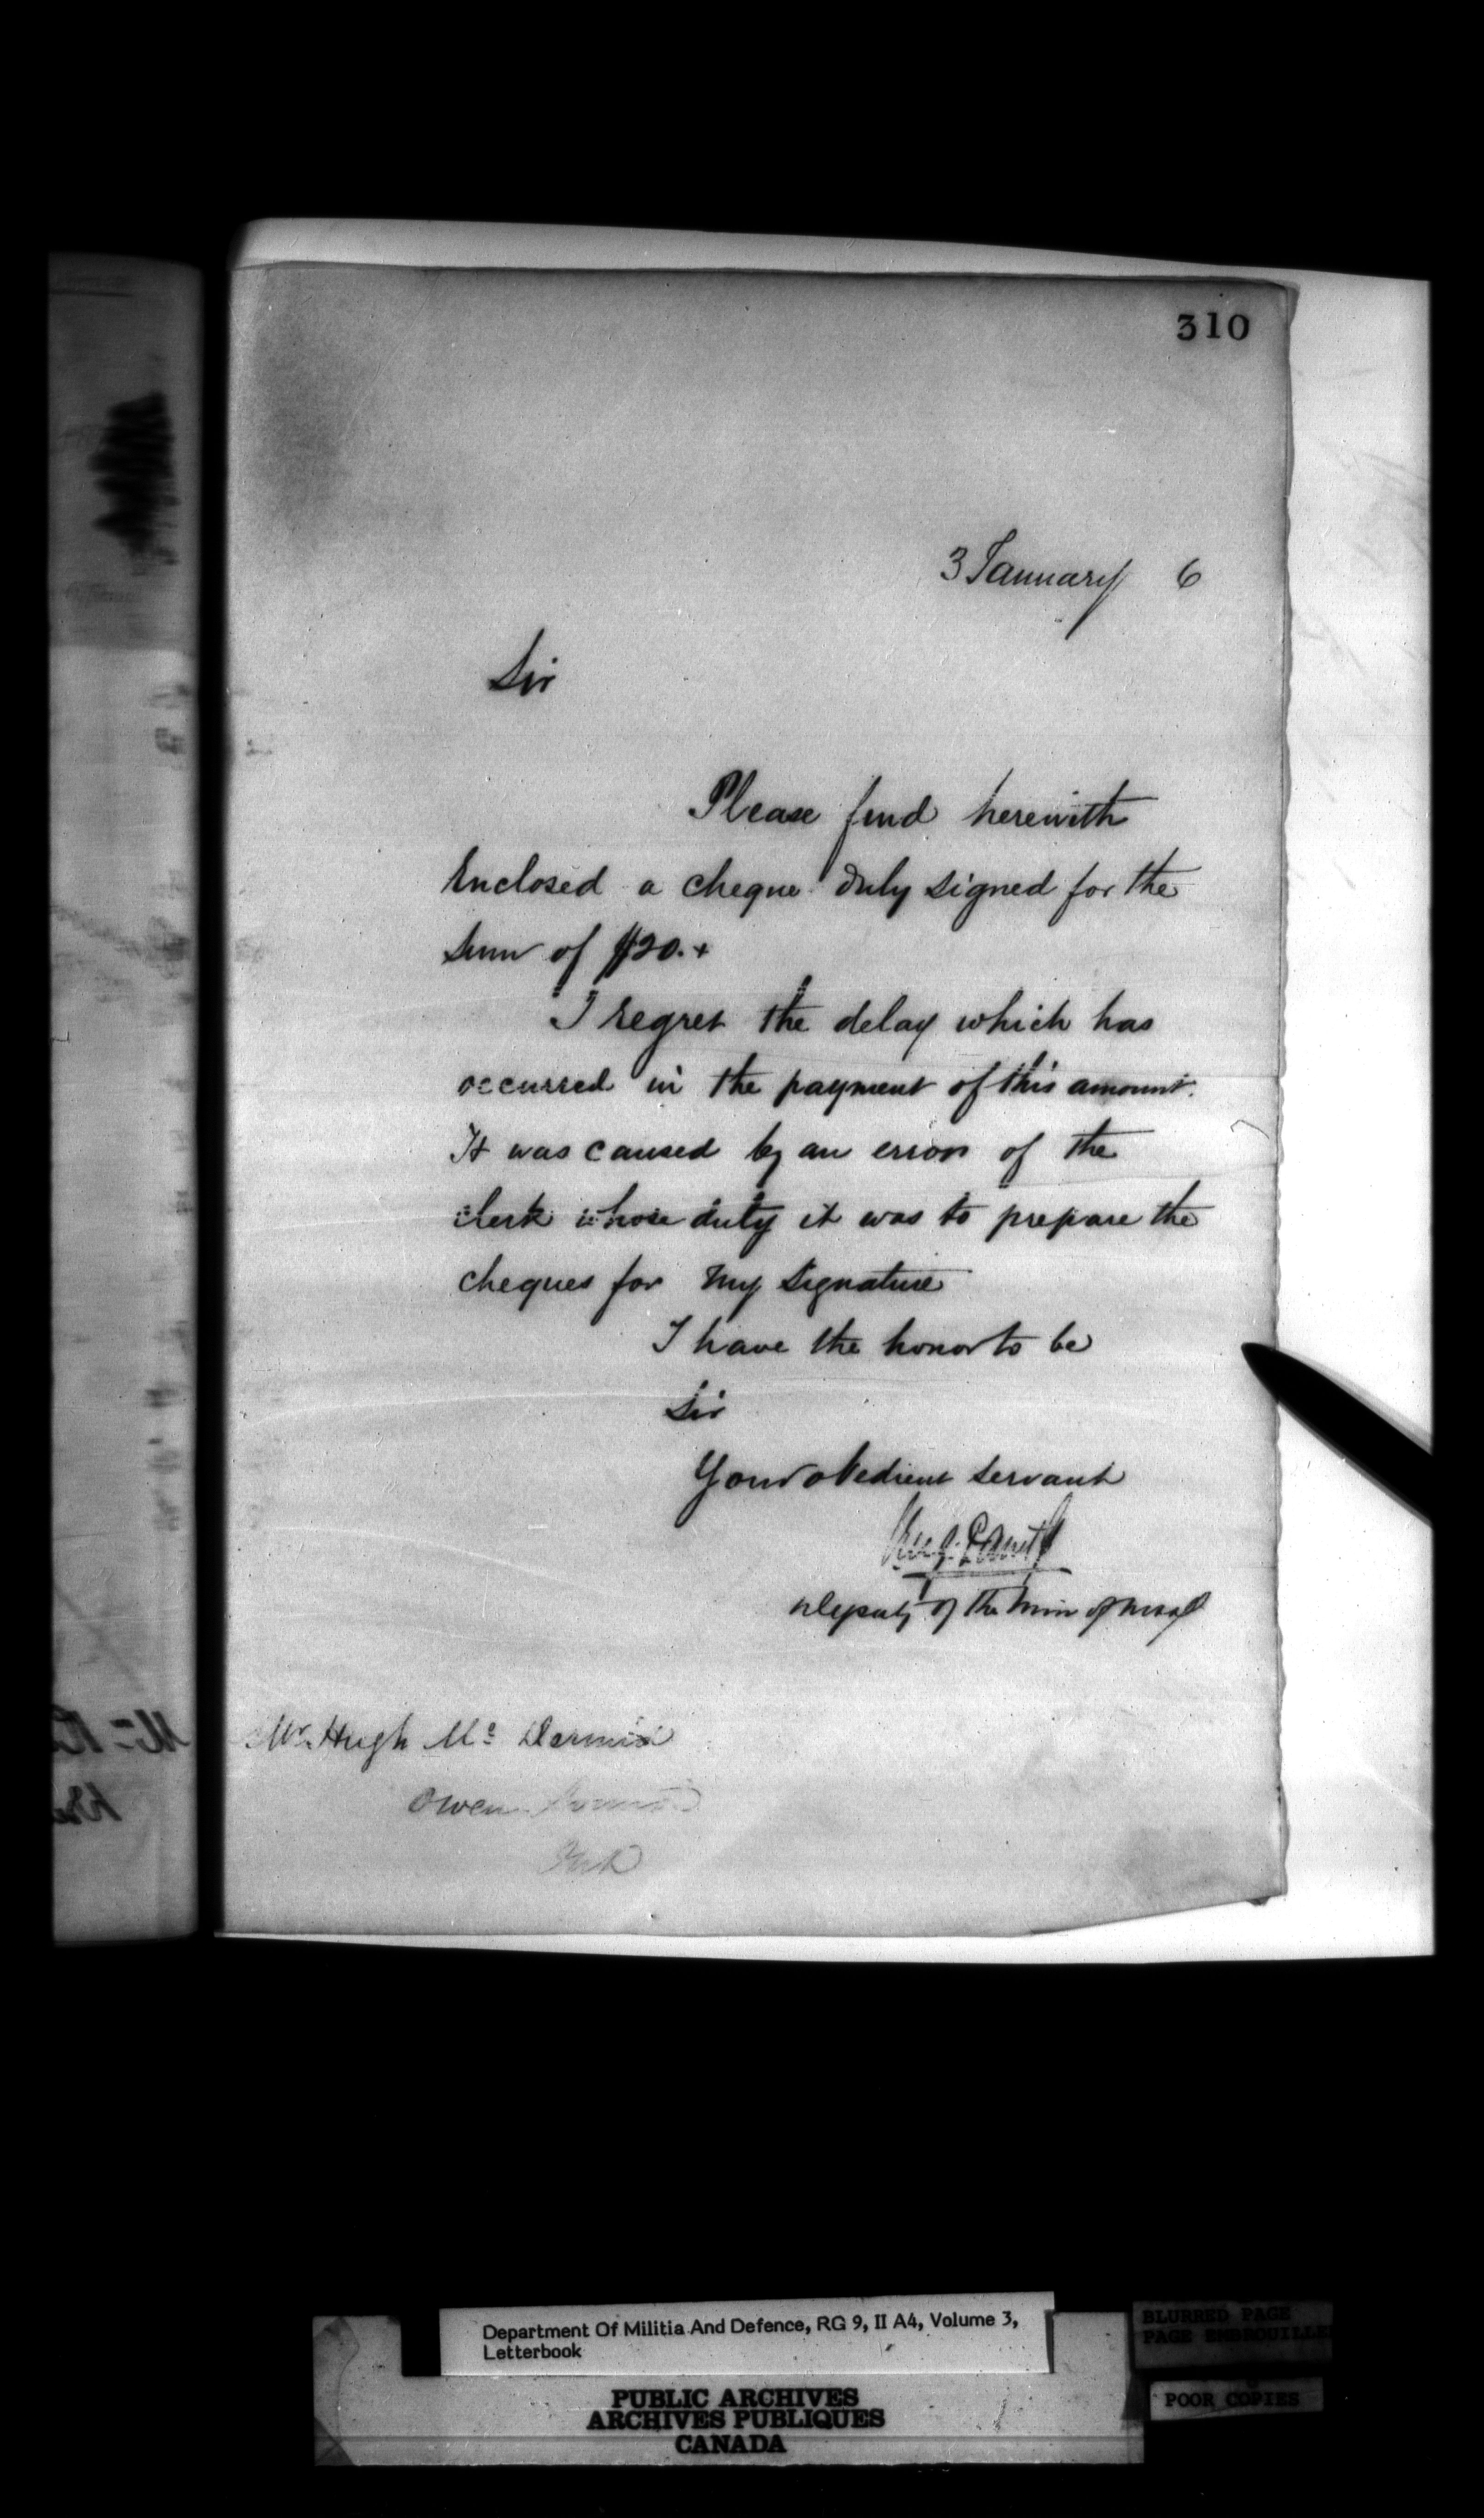 310
3 January 6
Sir
Please find herewith
Enclosed a cheque duly signed for the
sum of $20.+
I regret the delay which has
occurred in the payment of this amount.
It was caused by an error of the
clerk whose duty it was to prepare the
cheques for my signature
I have the honor to be
Sir
Your obedient servant
Deputy of the Min of
Mr. Hugh Mc Dermid
Owen
Department Of Militia And Defence, RG 9, II A4, Volume 3,
Letterbook
PUBLIC ARCHIVES
ARCHIVES PUBLIQUES
CANADA
BLURRED PAGE
PAGE EMBROUILLE
POOR COPIES